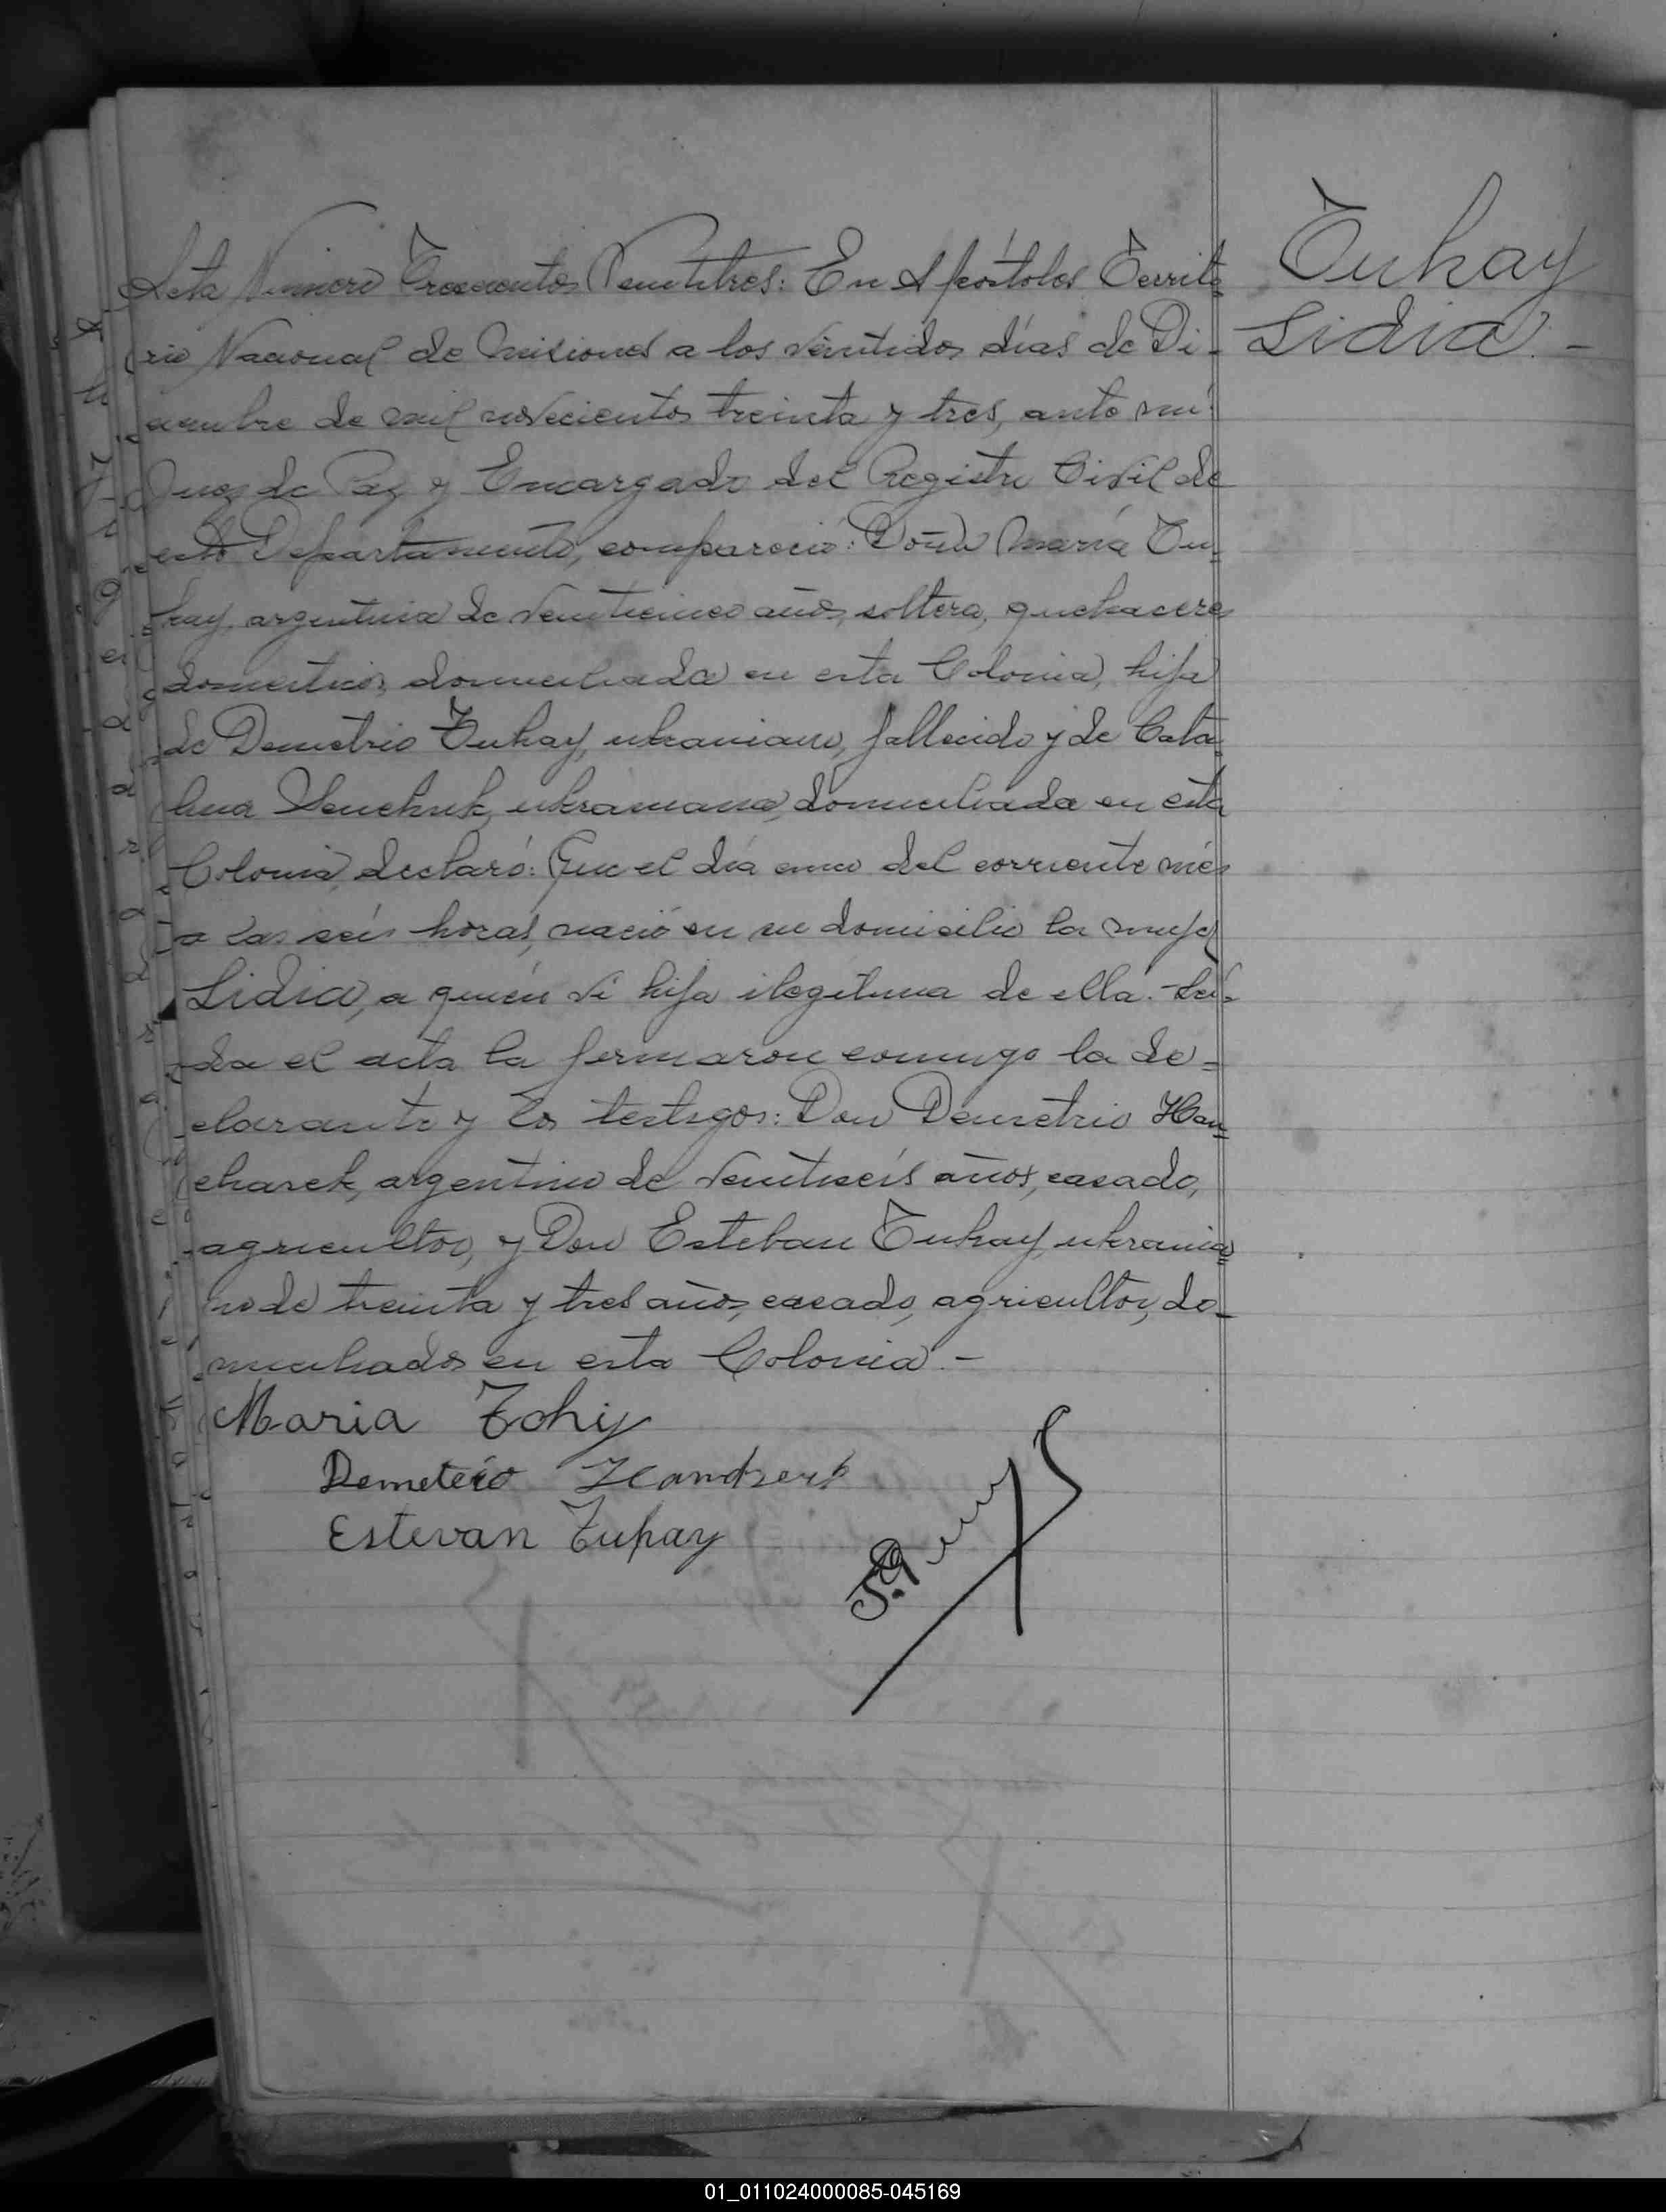 Tuhay
Lidia. -
Acta Número Trescientos Veintitres: En Apóstoles Territo=
rio Nacional de Misiones a los veintidos días de Di-
ciembre de mil novecientos treinta y tres, ante mí
Juez de Paz y Encargado del Registro Civil de
este Departamento, compareció: Doña María Tu=
hay, argentina de veinticinco años, soltera, quehaceres
domesticos, domiciliada en esta Colonia, hija
de Demetrio Tuhay, ukraniano, fallecido y de Cata=
lina ukraniana, domiciliada en esta
Colonia, declaró: Que el día cinco del corriente més
a las seis horas, nació en su domicilio la mujer
Lidia, a quién vi hija ilegitima de ella.- Leí-
da el acta la firmaron conmigo la de=
clarante y los testigos: Don Demetrio Han=
charek, argentino de veintiseis años, casado,
agricultor, y Don Esteban Tuhay, ukrania=
no de treinta y tres años, casado, agricultor, do-
miciliados en esta Colonia.-
Maria Tohiy
Demeterio
Estevan Tuhay
01_011024000085-045169